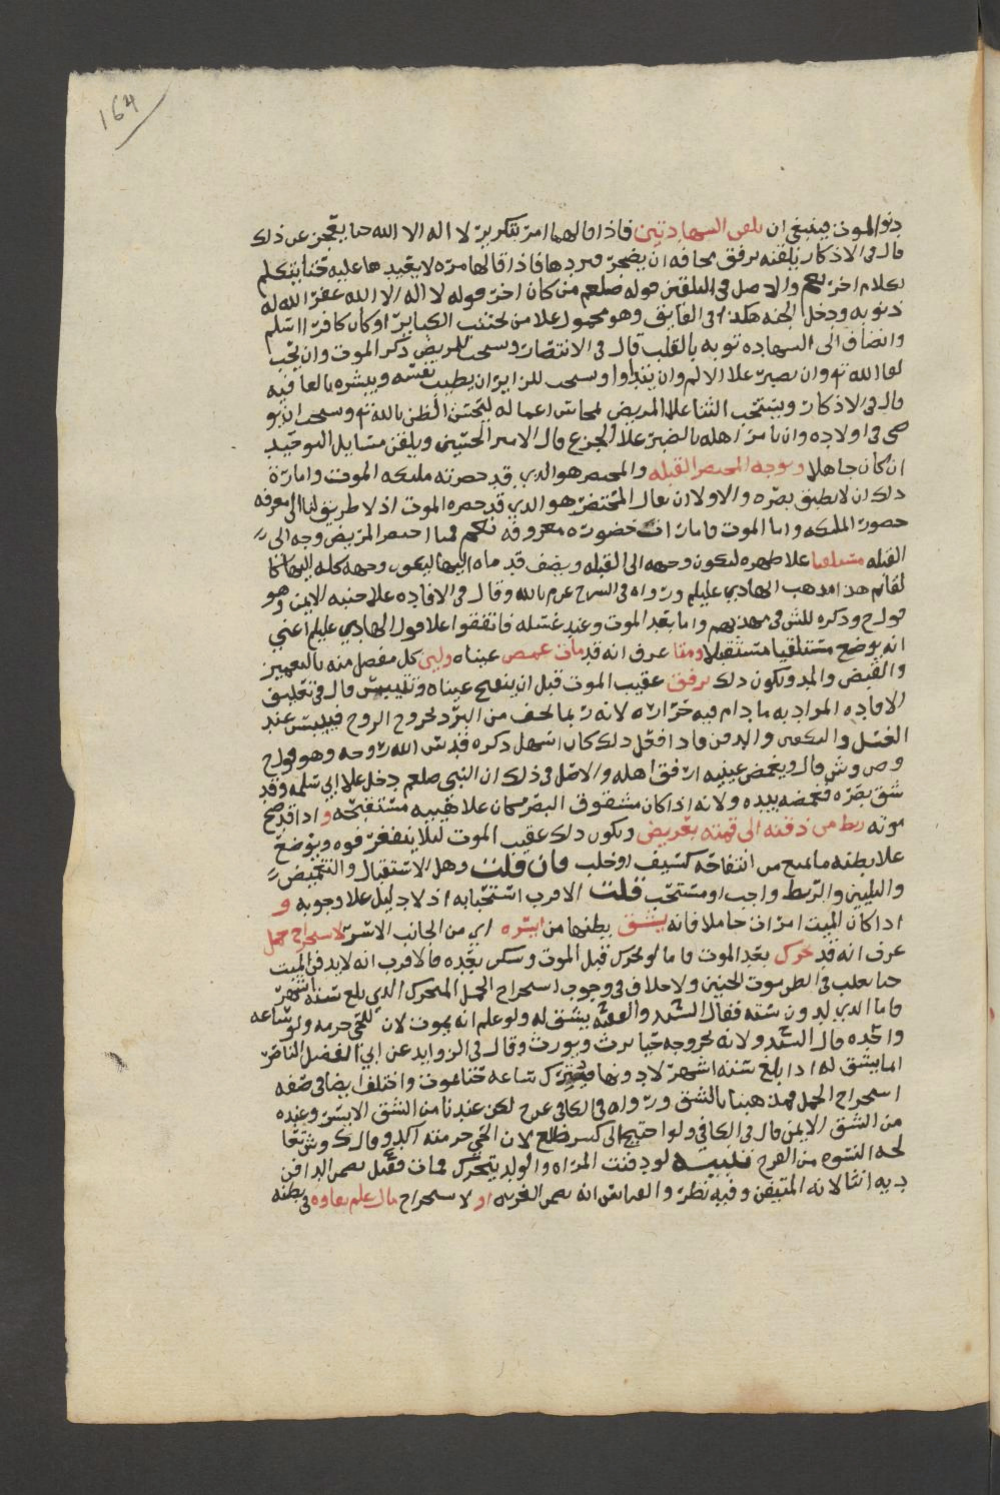 164
دنو الموت فينبغي ان يلقن الشهادتين فاذا قالهما امر بتكرير لا اله الا الله حتا يعجز عن ذلك
قال في الاذكار يلقنه برفق مخافه ان يضجر فيردها فاذا قالها مره لا يعيدها عليه حتا يتكلم
بكلام اخر نعم والاصل في التلقين قوله صلعم من كان اخر قوله لا اله الا الله غفر الله له
ذنوبه ودخل الجنه هكذا في الفايق وهو محمول علا من يجتنب الكباير او كان كافرا اسلم
وانضاف الى الشهاده توبه بالقلب قال في الانتصار ويستحب للمريض ذكر الموت وان يحب
لقا الله تع وان يصبر علا الالم وان يتداوا ويستحب للزاير ان يطيب نفسه ويبشره بالعافيه
قال في الاذكار ويستحب الثنا علا المريض بمحاسن اعماله ليحسن الظن بالله تع ويستحب ان يو
صي في اولاده وان يامر اهله بالصبر علا الجزع قال الامير الحسين ويلقن مسايل التوحيد
ان كان جاهلا ويوجه المحتضر القبله والمحتضر هو الذي قد حضرته مليكه الموت وامارة
ذلك ان لا يطبق بصره والاولا ان يقال المحتضر هو الذي قد حضره الموت اذ لا طريق لنا الى معرفه
حضور المليكه واما الموت فامارات حضوره معروفه نعم فمتا احتضر المريض وجه الى
القبله مستلقيا علا ظهره ليكون وجهه الى القبله ويصف قدماه اليها ليكون وجهه كله اليها كا
لقايم هذا مذهب الهادي عليلم ورواه في الشرح عن م بالله وقال في الافاده علا جنبه الايمن وهو
قول ح وذكره للش في مهذبهم واما بعد الموت وعند غسله فاتفقوا علا قول الهادي عليلم اعني
انه يوضع مستلقيا مستقبلا ومتا عرف انه قد مات غمض عيناه ولين كل مفصل منه بالتغميز
والقبض والمد ويكون ذلك برفق عقيب الموت قبل ان ينفتح عيناه وتليبس قال في تعليق
الافاده المراد به ما دام فيه حراره لانه ربما يخف من البرد بخروج الروح فييبس عند
الغسل والتكفين والدفن فاذا فعل ذلك كان اسهل ذكره قدس الله روحه وهو قول ح
وص وش قال ويغمض عينيه ارفق اهله والاصل في ذلك ان النبي صلعم دخل علا ابي سلمه وقد
شق بصره فغمضه بيده ولانه اذا كان مشقوق البصر كان علا هيبه مستقبحه واذا قد صح
موته ربط من ذقنه الى قمته بعريض ويكون ذلك عقيب الموت ليلا ينفغر فوه ويوضع
علا بطنه ما يمنع من انتفاخه كسيف او خلب فان قلت وهل الاستقبال والتغميض
والتليين والربط واجب او مستحب قلت الاقرب استحبابه اذ لا دليل علا وجوبه و
اذا كان الميت امرات حاملا فانه يشق بطنها من ايسره اي من الجانب الايسر لاستخراج حمل
عرف انه قد تحرك بعد الموت فاما لو تحرك قبل الموت وسكن بعده فالاقرب انه لا يدفن الميت
حتا يغلب في الظن موت الجنين ولا خلاف في وجوب استخراج الحمل المتحرك الذي بلغ سته اشهر
فاما الذي لدون سته فقال السيد والفقيه يشق له ولو علم انه يموت لان للحي حرمه ولو ساعه
واحده قال السيد ولانه بخروجه حيا يرث ويورث وقال في الزوايد عن ابي الفضل الناصر
انما يشق له اذا بلغ سته اشهر لا دونها فيترك ساعه حتا يموت واختلف ايضا في صفه
استخراج الحمل فمذهبنا بالشق ورواه في الكافي عن ح لكن عندنا من الشق الايسر وعنده
من الشق الايمن قال في الكافي ولو احتيج الى كسر ضلع لان الحي حرمته اكد وقال ك وش تعا
لجه النسوه من الفرج تنبيه لو دفنت المراه والولد يتحرك فمات فقيل يضمن الدافن
ديه انثا لانه المتيقن وفيه نظر والقياس انه يضمن الغره او لاستخراج مال علم بقاوه في بطنه